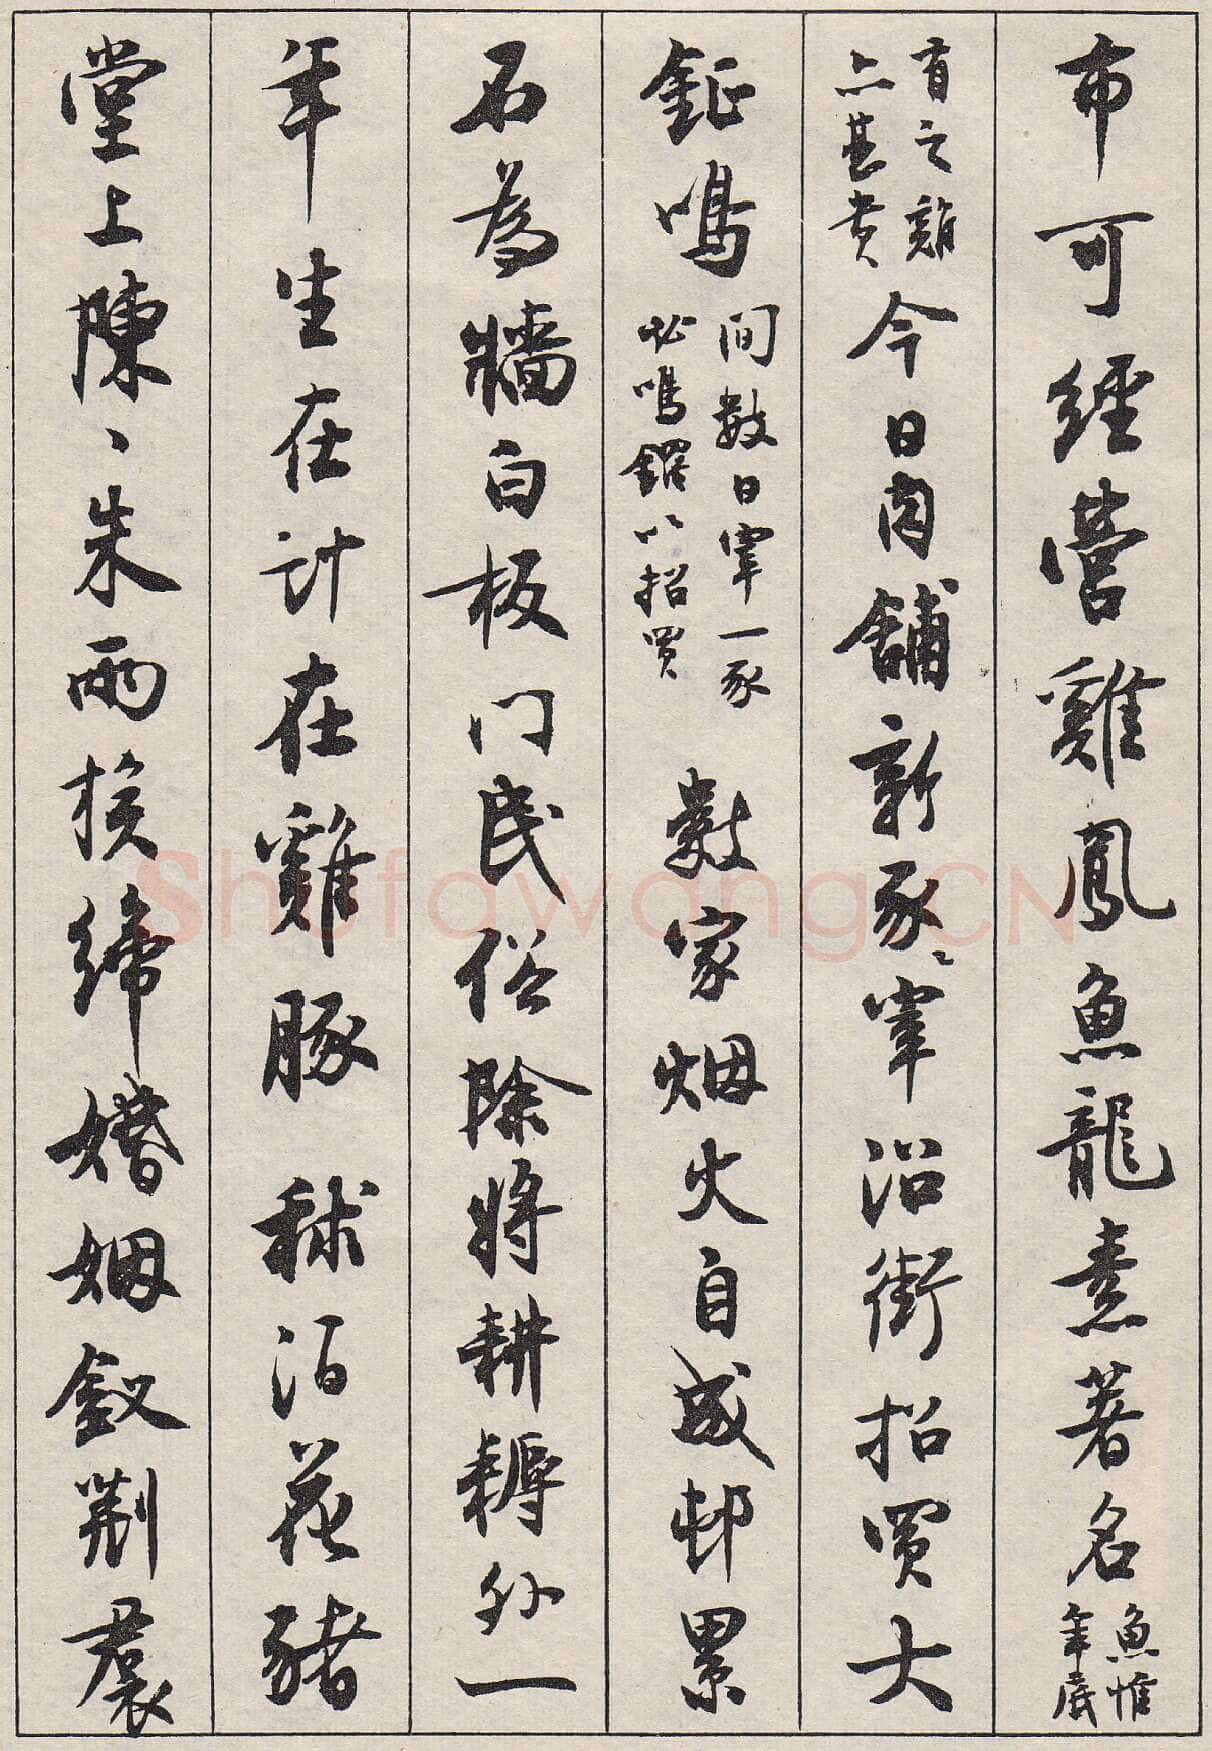 布可經營雞鳳魚龍素著名魚惟年底
有之雞亦甚貴今日肉舖新豕〻宰沿街招買大
鉦鳴間數日宰一豕必鳴鑼以招買數家烟火自成邨累
石為牆白板门民俗除將耕耨外一
年生在計在雞豚秫泊花豬
堂上陳〻朱兩族締婚姻釵荆裠
Shufawang.CN